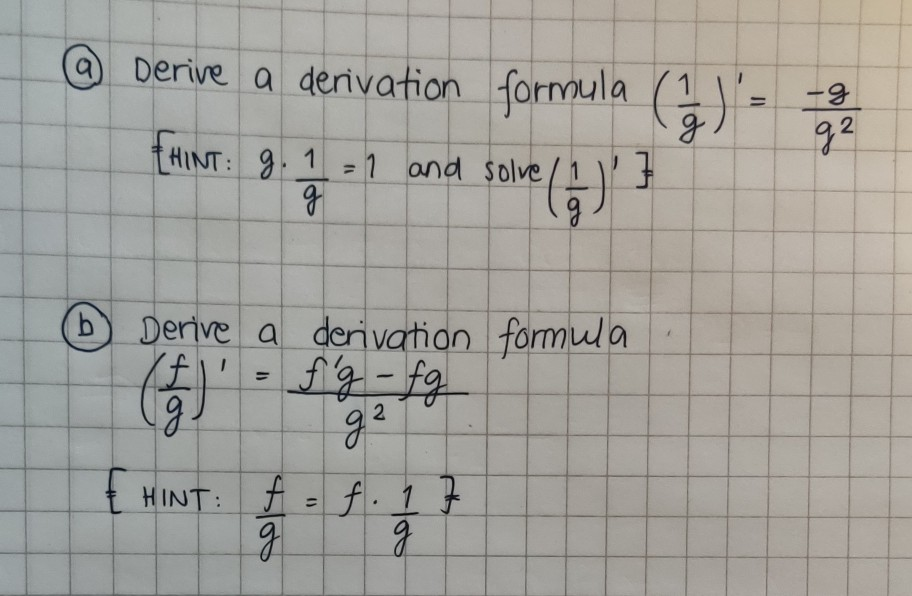 (a) Derive a derivation formula (1/g)' = -g/g²
[HINT: g · 1/g = 1 and solve (1/g)' ]
(b) Derive a derivation formula
(f/g)' = f'g - fg/g²
[ HINT: f/g = f · 1/g ]